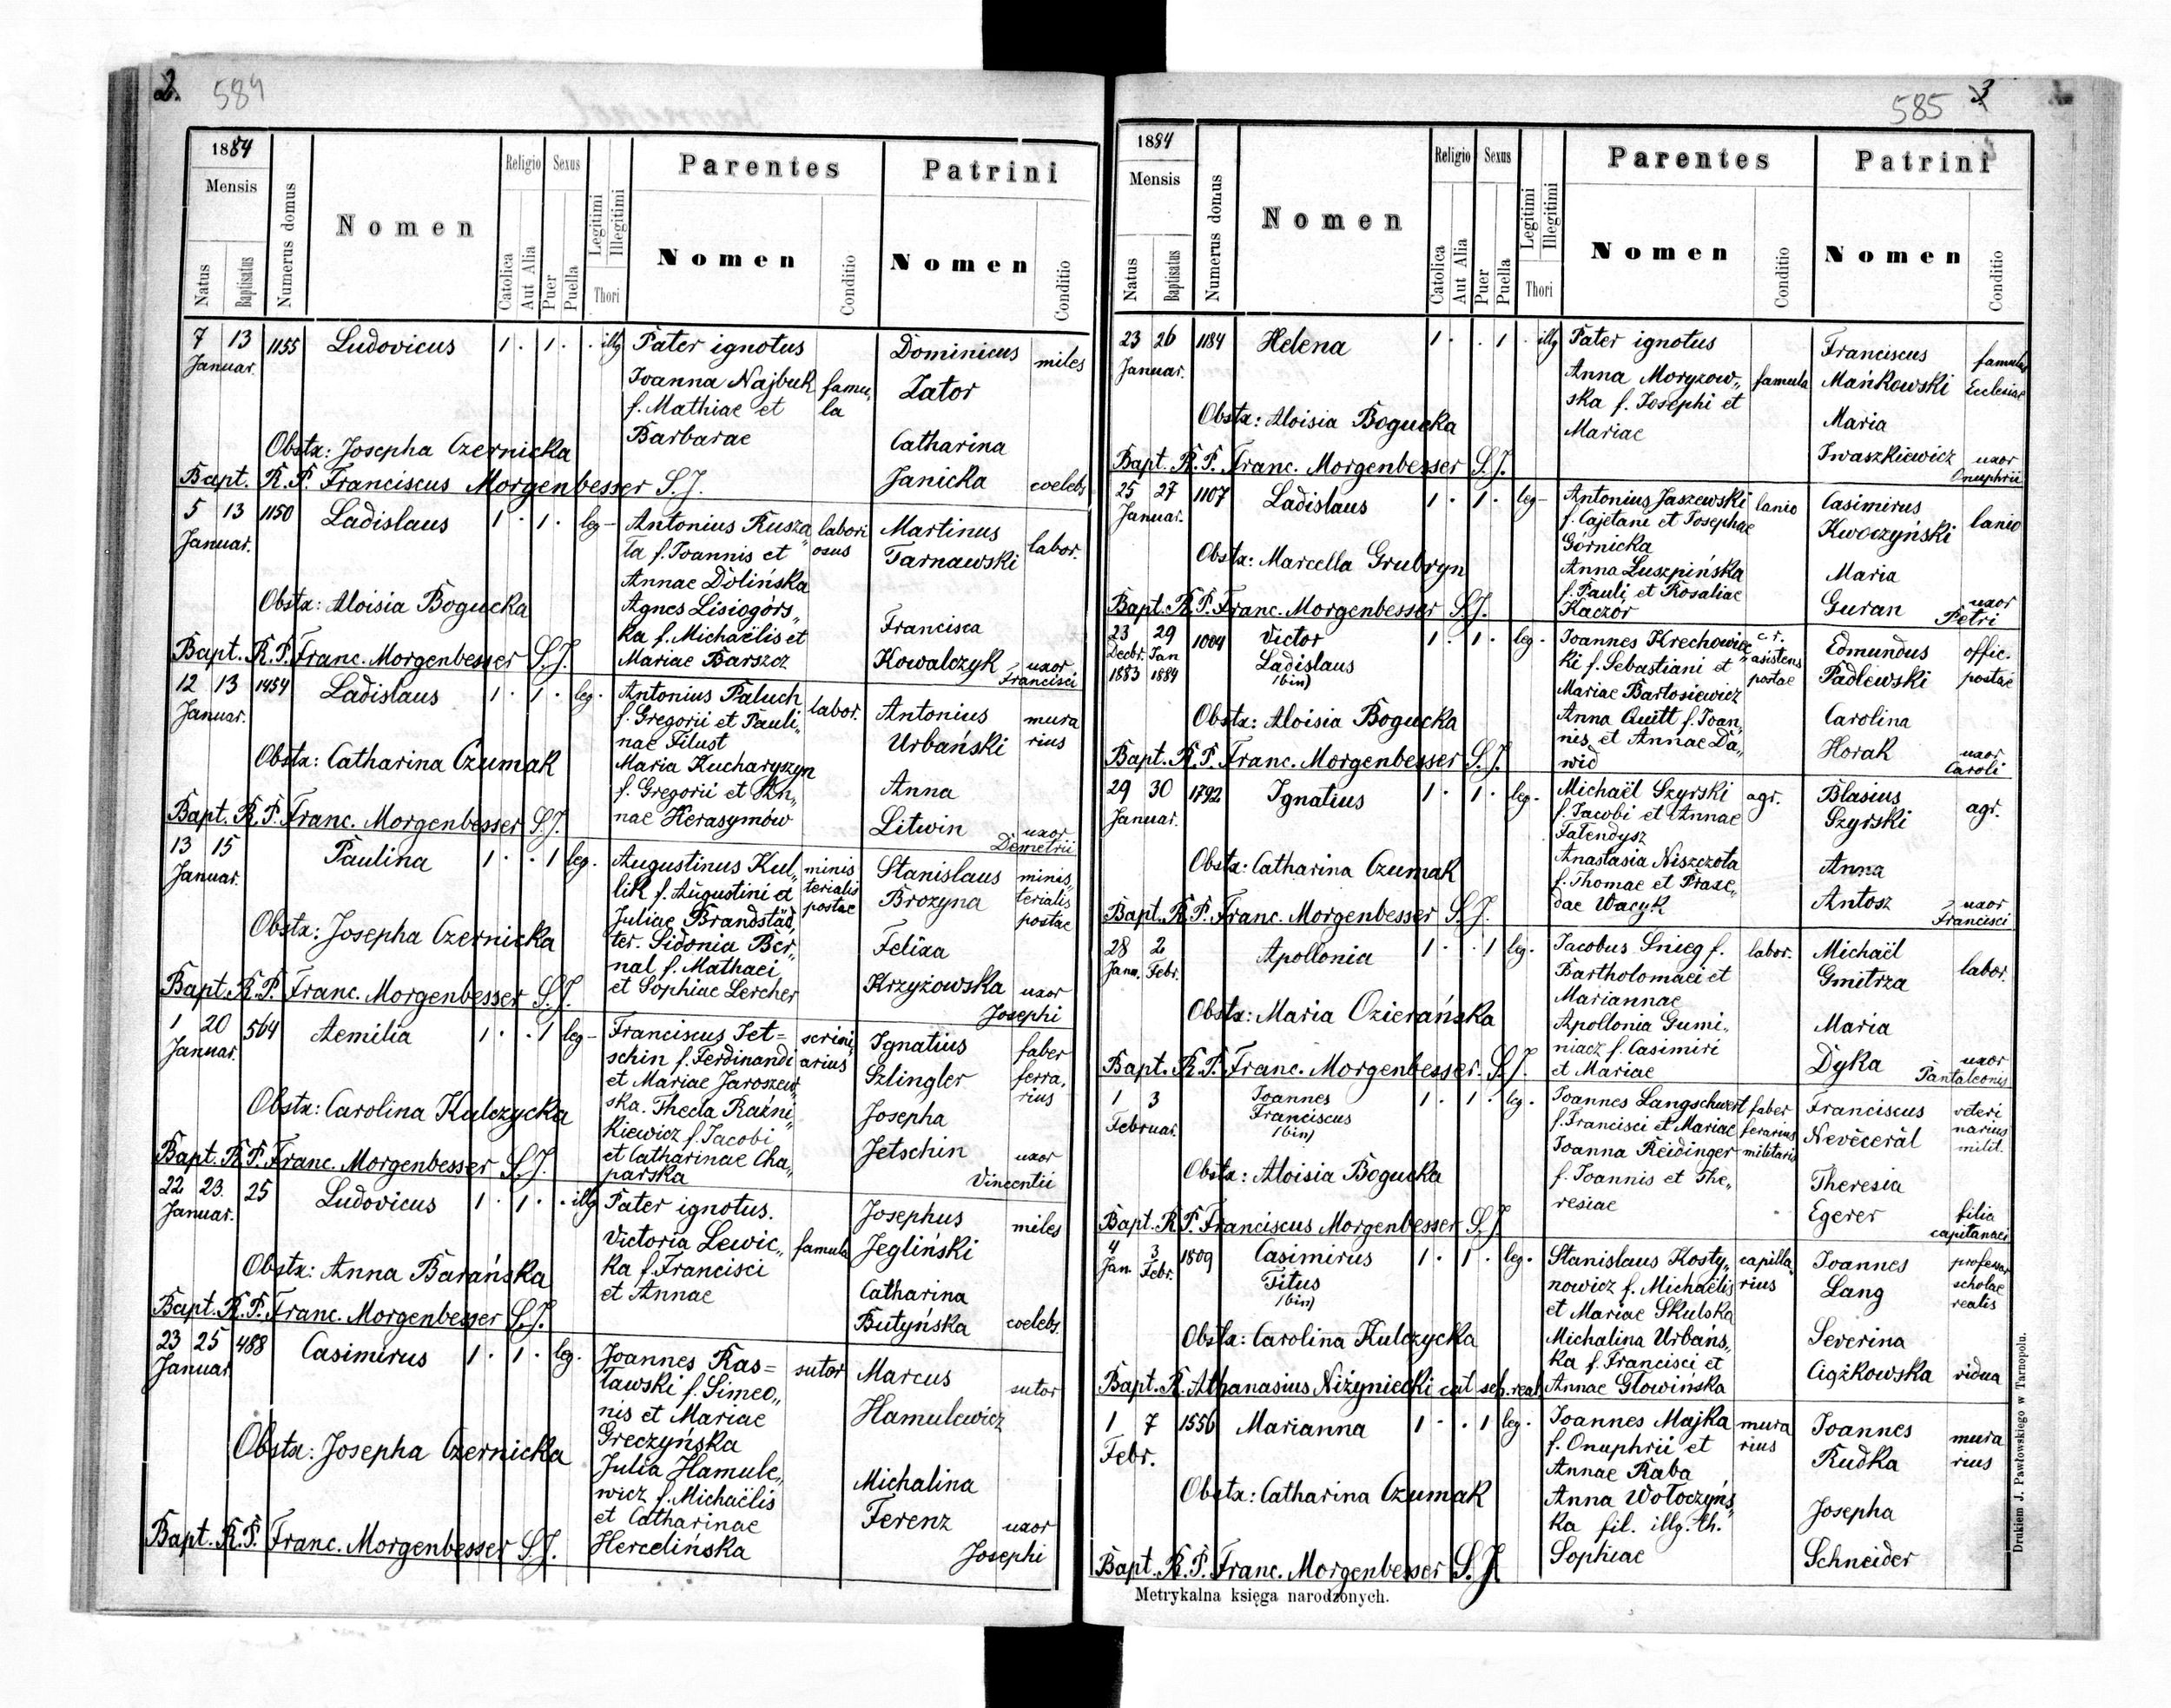 2. 584
1884
Mensis
Natus
Baptisatus
Numerus domus
Nomen
Religio
Catolica
Aut Alia
Sexus
Puer
Puella
Legitimi
Illegitimi
Thori
Parentes
Nomen
Conditio
Patrini
Nomen
Conditio
7 13 1155 Ludovicus 1 . 1 . . illg Pater ignotus
Januar.
Joanna Najbuk famu„
f. Mathiae et la
Barbarae
Dominicus miles
Zator
Catharina
Janicka coelebs
Obstx: Josepha Czernicka
Bapt. R. P. Franciscus Morgenbesser S.J.
5 13 1150 Ladislaus 1 . 1 . leg - Antonius Rusza„ labori
Januar.
ła f. Joannis et osus
Annae Dolińska
Agnes Lisiogórs„
ka f. Michaëlis et
Mariae Barszcz
Martinus
Tarnawski labor.
Francisca
Kowalczyk uxor
Francisci
Obstx: Aloisia Bogucka
Bapt. R. P. Franc. Morgenbesser S.J.
12 13 1454 Ladislaus 1 . 1 . leg. Antonius Paluch labor.
Januar.
f. Gregorii et Pauli„
nae Filust
Maria Kucharyszyn
f. Gregorii et An„
nae Herasymów
Antonius mura
Urbański rius
Anna
Litwin uxor
Demetrii
Obstx: Catharina Czumak
Bapt. R. P. Franc. Morgenbesser S.J.
13 15 Paulina 1 . . 1 leg. Augustinus Kul„ minis
Januar.
lik f. Augustini et terialis
Juliae Brandstäd„ postae
ter. Sidonia Ber„
nal f. Mathaei
et Sophiae Lercher
Stanislaus minis„
Brozyna terialis
postae
Felixa
Krzyżowska uxor
Josephi
Obstx: Josepha Czernicka
Bapt. R. P. Franc. Morgenbesser S.J.
1 20 564 Aemilia 1 . . 1 leg - Franciscus Jet= scrini„
Januar.
schin f. Ferdinandi arius
et Mariae Jaroszew„
ska. Thecla Raźni„
kiewicz f. Jacobi
et Catharinae Cha„
parska
Ignatius faber
Szlingler ferra„
rius
Josepha
Jetschin uxor
Vincentii
Obstx: Carolina Kulczycka
Bapt. R. P. Franc. Morgenbesser S.J.
22 23. 25 Ludovicus 1 . 1 . . illg Pater ignotus.
Januar.
Victoria Lewic„ famula
ka f. Francisci
et Annae
Josephus miles
Jegliński
Catharina
Butyńska coelebs.
Obstx: Anna Barańska
Bapt. R. P. Franc. Morgenbesser S.J.
23 25 488 Casimirus 1 . 1 . leg. Joannes Ras= sutor
Januar
ławski f. Simeo„
nis et Mariae
Greczyńska
Julia Hamule„
wicz f. Michaëlis
et Catharinae
Hercelińska
Marcus sutor
Hamulewicz
Michalina
Ferenz uxor
Josephi
Obstx: Josepha Czernicka
Bapt. R. P. Franc. Morgenbesser S.J.
585 3
1884
Mensis
Natus
Baptisatus
Numerus domus
Nomen
Religio
Catolica
Aut Alia
Sexus
Puer
Puella
Legitimi
Illegitimi
Thori
Parentes
Nomen
Conditio
Patrini
Nomen
Conditio
23 26 1184 Helena 1 . . 1 . illg Pater ignotus
Januar.
Anna Moryzow„ famula
ska f. Josephi et
Mariae
Franciscus famulus
Mańkowski Ecclesiae
Maria
Iwaszkiewicz uxor
Onuphrii
Obstx: Aloisia Bogucka
Bapt. R. P. Franc. Morgenbesser S.J.
25 27 1107 Ladislaus 1 . 1 . leg - Antonius Jaszewski lanio
Januar.
f. Cajetani et Josephae
Górnicka
Anna Luszpińska
f. Pauli et Rosaliae
Kaczor
Casimirus
Kwoczyński lanio
Maria
Guran uxor
Petri
Obstx: Marcella Grubryn
Bapt. R. P. Franc. Morgenbesser S.J.
23 29 1004 Victor 1 . 1 . leg. Joannes Krechowic„ c. r.
Decbr. Jan Ladislaus ki f. Sebastiani et asistens
1883 1884 (bin) Mariae Bartosiewicz postae
Anna Quitt f. Joan„
nis et Annae Da„
wid
Edmundus offic.
Padlewski postae
Carolina
Horak uxor
Caroli
Obstx: Aloisia Bogucka
Bapt. R. P. Franc. Morgenbesser S.J.
29 30 1792 Ignatius 1 . 1 . leg. Michaël Szyrski agr.
Januar.
f. Jacobi et Annae
Fatendysz
Anastasia Niszczota
f. Thomae et Praxe„
dae Wacyk
Blasius
Szyrski agr.
Anna
Antosz uxor
Francisci
Obstx: Catharina Czumak
Bapt. R. P. Franc. Morgenbesser S.J.
28 2 Apollonia 1 . . 1 leg. Jacobus Snieg f. labor.
Janu. Febr.
Bartholomaei et
Mariannae
Apollonia Gumi„
niacz f. Casimiri
et Mariae
Michaël
Gmitrza labor.
Maria
Dyka uxor
Pantaleonis
Obstx: Maria Ozierańska
Bapt. R. P. Franc. Morgenbesser. S.J.
1 3 Joannes 1 . 1 . leg. Joannes Langschwert faber
Februar. Franciscus f. Francisci et Mariae ferarius
(bin) Joanna Reidinger militaris
f. Joannis et The„
resiae
Franciscus veteri
Nevěčeřal narius
milit.
Theresia
Egerer filia
capitanaei
Obstx: Aloisia Bogucka
Bapt. R. P. Franciscus Morgenbesser S.J.
4 3 1509 Casimirus 1 . 1 . leg. Stanislaus Kosty„ capilla„
Jan. Febr. Titus nowicz f. Michaëlis rius
(bin) et Mariae Skulska
Michalina Urbańs„
ka f. Francisci et
Annae Głowińska
Joannes professor
Lang scholae
realis
Severina
Ciążkowska vidua
Obstx: Carolina Kulczycka
Bapt. R. Athanasius Niżyniecki cat sch. real
1 7 1556 Marianna 1 . . 1 leg. Joannes Majka mura
Febr.
f. Onuphrii et rius
Annae Raba
Anna Wołoczyńs„
ka fil. illg. th.
Sophiae
Joannes mura
Rudka rius
Josepha
Schneider
Obstx: Catharina Czumak
Bapt. R. P. Franc. Morgenbesser S.J.
Metrykalna księga narodzonych.
Drukiem J. Pawłowskiego w Tarnopolu.